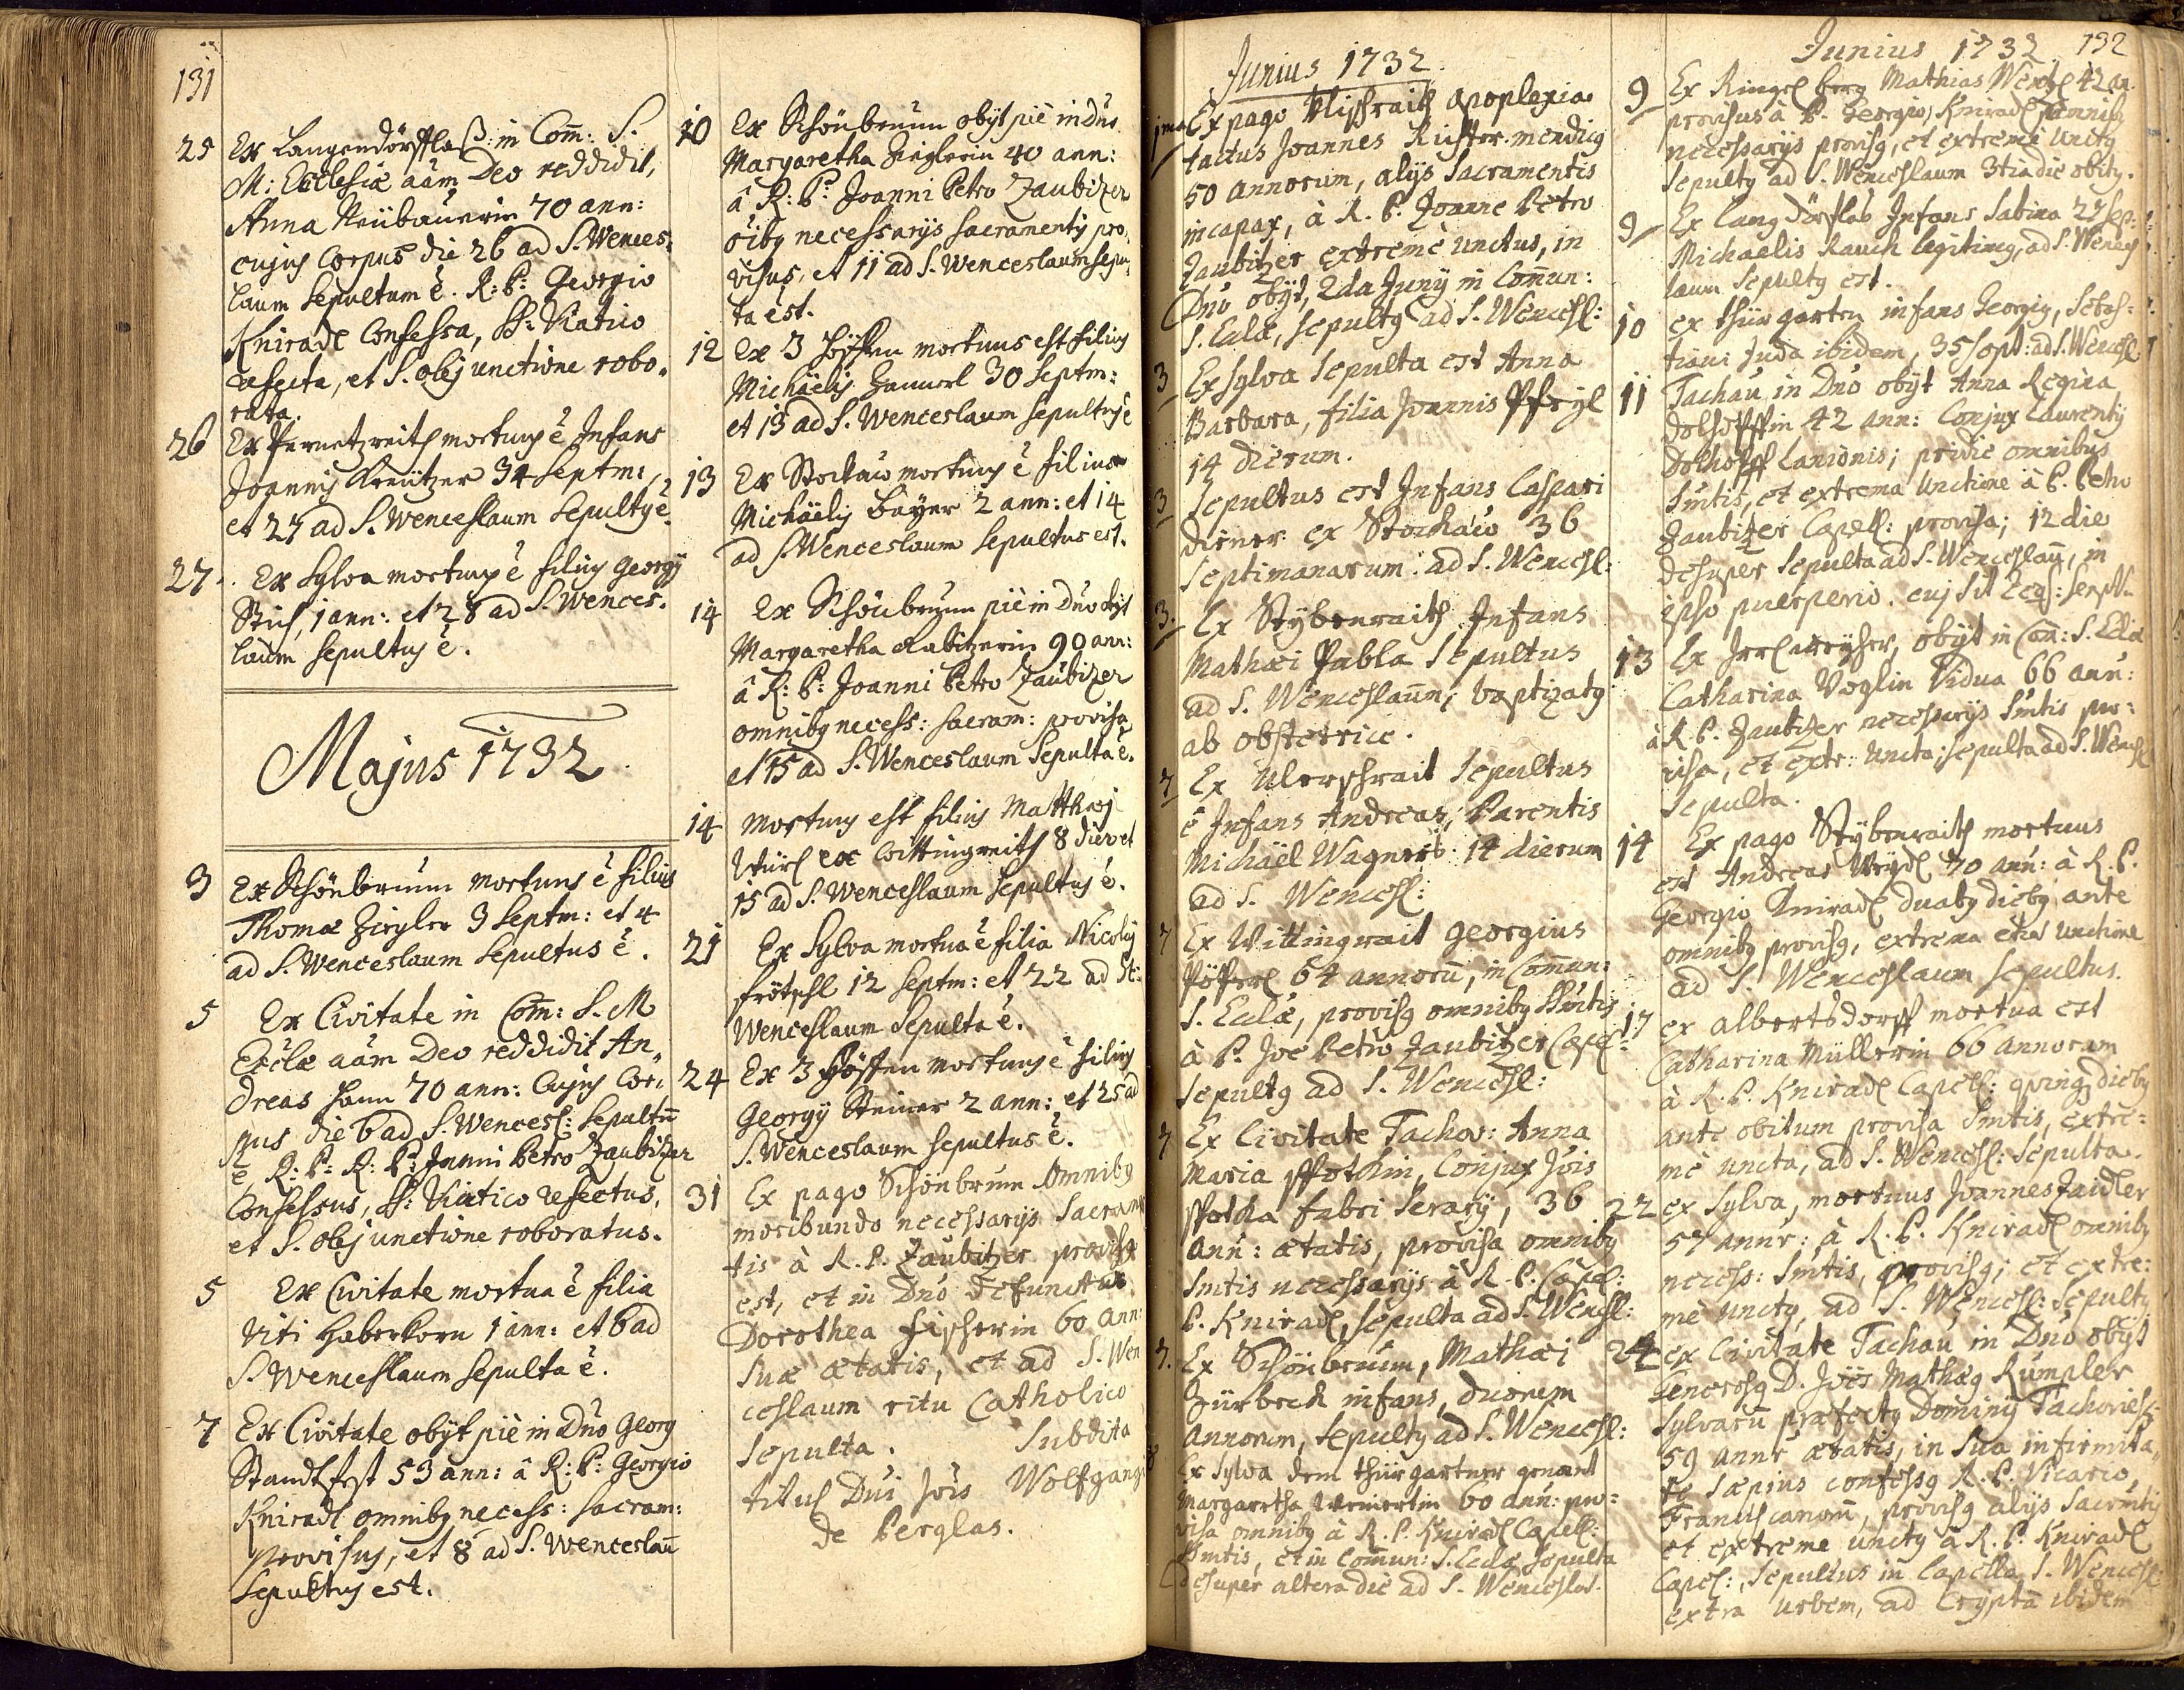 131
25 Ex Langendörfflaß: in Com̄: S.
M: Ecclesiæ aām Deo reddidit,
Anna Neübauerin 70 ann:
cujus Corpus die 26 ad S. Wences:
laum Sepultum ē. R: P: Georgio
Kniradl Confessa, SS: Viatico
refecta, et S. olej unctione robo„
rata.
26 Ex Pernetzreith mortuus ē Infans
Joannis Kreützer 34 Septm:,
et 27 ad S. Wenceslaum Sepultus ē.
27. Ex Sylva mortuus ē filius Georgÿ
Stich, 1 ann: et 28 ad S. Wences.
laum sepultus ē.
Majus 1732
3 Ex Schönbrunn mortuus ē filius
Thomæ Ziegler 3 Septm: et 4
ad S. Wenceslaum Sepultus ē.
5 Ex Civitate in Com̄: S. M
Ecclæ aām Deo reddidit An„
dreas Hann 70 ann: Cujus Cor„
pus die 6 ad S. Wencesl: Sepultū
ē R: P: R: P: Joanni Petro Zaubitzer
Confessus, SS: Viatico refectus,
et S. olej unctione roboratus.
5 Ex Civitate mortua ē filia
Viti Haberkorn 1 ann: et 6 ad
S. Wenceslaum Sepulta ē.
7 Ex Civitate obÿt piè in Dno Georg
Standtfest 53 ann: â R: P: Georgio
Kniradl omnibg necess: sacram:
provisus, et 8 ad S. Wenceslaū
Sepultus est.
10 Ex Schönbrunn obÿt piè in Dno
Margaretha Zieglerin 40 ann:
â R: P: Joanni Petro Zaubitzer
oībg necessarÿs sacramentis pro„
visus, et 11 ad S. Wenceslaum sepul„
ta est.
12 Ex 3 Höffen mortuus est filius
Michäelis 30 Septm:
et 13 ad S. Wenceslaum Sepultus ē
13 Ex Stockau mortuus ē filius
Michäelis Bayer 2 ann: et 14
ad S. Wenceslaum Sepultus est.
14 Ex Schönbrunn piè in Dno obÿt
Margaretha Rabitzerin 90 ann:
â R: P: Joanni Petro Zaubitzer
omnibg necess: sacram: provisa
et 15 ad S. Wenceslaum Sepulta ē.
14 Mortuus est filius Matthæj
Würl ex Wittingreith 8 dier et
15 ad S. Wenceslaum Sepultus ē.
21 Ex Sylva mortua ē filia Nicolaj
frötschl 12 Septm: et 22 ad St:
Wenceslaum Sepulta ē.
24 Ex 3 Höffen mortuus ē filius
Georgÿ Steiner 2 ann: et 25 ad
S. Wenceslaum sepultus ē.
31 Ex pago Schönbrunn omnibg
moribundo necessarÿs Sacramē
tis à R. P. Zaubitzer provisa
est, et in Dno defuncta
Dorothea fischerin 60 ann:
Suæ ætatis, et ad S. Wen
ceslaum ritu Catholico
Sepulta. Subdita
titul Dni Jois Wolfgangi
de Perglas.
Junius 1732.
1ma Ex pago Ulischraith apoplexia
tactus Joannes Richter mendicg
50 annorum, alÿs Sacramentis
incapax, à R. P. Joanne Petro
Zaubitzer extremè unctus, in
Dno obÿt, 2da Junÿ in Com̄un:
S. Eclæ, sepultg ad S. Wencesl:
3 Ex Sylva Sepulta est Anna
Barbara, filia Joannis Pfeÿl
14 dierum.
3 Sepultus est Infans Caspari
diener ex Stockau 36
Septimanarum: ad S. Wencesl:
3. Ex Stÿbenraith Infans
Mathæi Pabla Sepultus
ad S. Wenceslaum, baptizatg
ab obstetrice.
7 Ex Ulerschrait Sepultus
ē Infans Andreas, Parentis
Michäel Wagner: 14 dierum
ad S. Wencesl:
7 Ex Wittingrait Georgius
Pöfferl 64 annorū, in Com̄un:
S. Eclæ, provisg omnibg Smtis
à P. Joē Petro Zaubitzer Capel:
Sepultg ad S. Wencesl:
7 Ex Civitate Tachov: Anna
Maria Pfothin, Conjux Jois
Pfotha fabri Serarÿ, 36
ann: ætatis, provisa omnibg
Smtis necessarÿs à R. P. Capel:
P. Kniradl, sepulta ad S. Wencesl:
7. Ex Schönbrunn, Mathæi
Zürbeck infans, duorum
annorum, sepultg ad S. Wencesl:
8 Ex Sylva dem thürgartner genant
Margaretha Weinertin 60 ann: pro=
visa omnibg à R. P. Kniradl Capell:
Smtis, et in Com̄un: S. Eclæ Sepulta
desuper altera die ad S. Wenceslaū.
Junius 1732 132
9 Ex Ringelberg Mathias Wentzl 42 an
provisus à P. Georgio Kniradl omnibg
necessarÿs provisg, et extremè unctg
Sepultg ad S. Wenceslaum 3tia die obitg.
9 Ex Langdörflas Infans Sabina 27 Sep:
Michaelis Rauch legitimg, ad S. Wences
laum Sepultg est.
10 ex thürgarten infans Georgig, Sebas=
tiani Juda ibidem, 35 Sept: ad S. Wencesl
11 Tachau in Dno obÿt Anna Regina
Dolhopffin 42 ann: Conjux Laurentÿ
Dolhopff Lanionis; pridie omnibus
Smtis, et extrema Unctione à P. Petro
Zaubitzer Capell: provisa; 12 die
desuper Sepulta ad S. Wenceslaū, in
ipso puerperio.
13 Ex obÿt in Com̄: S. Eclæ
Catharina Voglin Vidua 66 ann:
à R. P. Zaubitzer necessarÿs Smtis pro=
visa, et extr: uncta; sepulta ad S. Wencesl
Sepulta.
14 Ex pago Stÿbenraith mortuus
est Andreas Weÿdl 70 ann: à R. P.
Georgio Kniradl duabg diebg ante
omnibg provisg, extrema etiā Unctione
ad S. Wenceslaum Sepultus.
17 ex albertsdorff mortua est
Catharina Müllerin 66 annorum
à R. P. Kniradl Capell: quinq diebg
ante obitum provisa Smtis, extre=
mè uncta, ad S. Wencesl: Sepulta.
22 ex Sylva, mortuus Joannes Zaidler
57 annr: à R. P. Kniradl omnibg
necess: Smtis, provisg; et extre:
mè unctg, ad S. Wencesl: Sepultg
24 ex Civitate Tachau in Dno obÿt
Generosg D. Joēs Mathæg Rumpler
Sylvarū præfectg Dominÿ Tachoviens
59 annr ætatis, in sua infirmita„
te Sæpius confessg R. P. Vicario,
Franciscanorū, provisg alÿs Sacrmtis
et extreme unctg à R. P. Kniradl
Capel:, Sepultus in Capella S. Wencesl:
extra Urbem, ad Cryptā ibidem